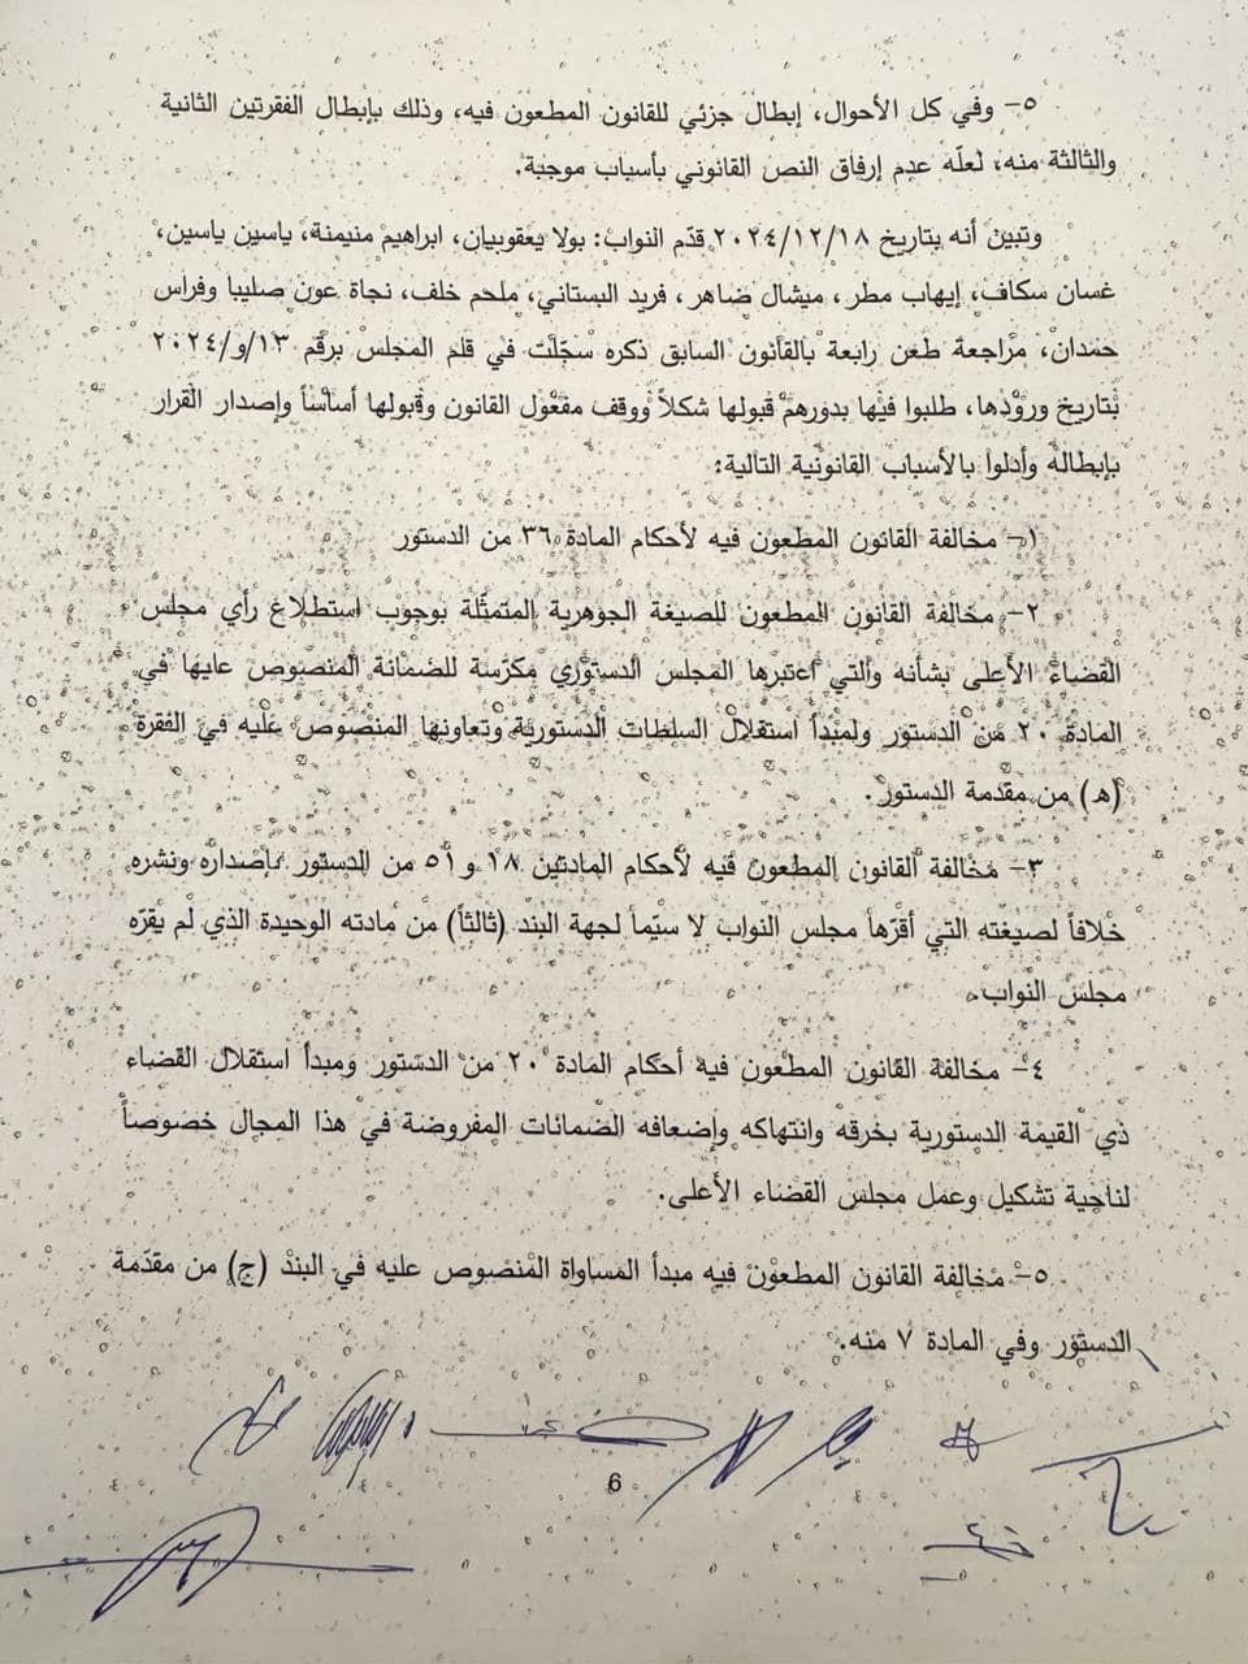 ٥- وفي كل الأحوال، إبطال جزئي للقانون المطعون فيه، وذلك بإبطال الفقرتين الثانية
والثالثة منه، لعلّه عدم إرفاق النص القانوني بأسباب موجبة.
وتبين أنه بتاريخ ٢٠٢٤/١٢/١٨ قدّم النواب: بولا يعقوبيان، ابراهيم منيمنة، ياسين ياسين،
غسان سكاف، إيهاب مطر، ميشال ضاهر، فريد البستاني، ملحم خلف، نجاة عون صليبا وفراس
حمدان، مراجعة طعن رابعة بالقانون السابق ذكره سجّلت في قلم المجلس برقم ١٣/و/٢٠٢٤
بتاريخ ورودها، طلبوا فيها بدورهم قبولها شكلاً ووقف مفعول القانون وقبولها أساساً وإصدار القرار
بإبطاله وأدلوا بالأسباب القانونية التالية:
١- مخالفة القانون المطعون فيه لأحكام المادة ٣٦ من الدستور
٢- مخالفة القانون المطعون للصيغة الجوهرية المتمثّلة بوجوب استطلاع رأي مجلس
القضاء الأعلى بشأنه والتي اعتبرها المجلس الدستوري مكرّسة للضمانة المنصوص عليها في
المادة ٢٠ من الدستور ولمبدأ استقلال السلطات الدستورية وتعاونها المنصوص عليه في الفقرة
(ه) من مقدمة الدستور.
٣- مخالفة القانون المطعون فيه لأحكام المادتين ١٨ و ٥١ من الدستور بإصداره ونشره
خلافاً لصيغته التي أقرّها مجلس النواب لا سيّما لجهة البند (ثالثاً) من مادته الوحيدة الذي لم يقرّه
مجلس النواب.
٤- مخالفة القانون المطعون فيه أحكام المادة ٢٠ من الدستور ومبدأ استقلال القضاء
ذي القيمة الدستورية بخرقه وانتهاكه وإضعافه الضمانات المفروضة في هذا المجال خصوصاً
لناحية تشكيل وعمل مجلس القضاء الأعلى.
٥- مخالفة القانون المطعون فيه مبدأ المساواة المنصوص عليه في البند (ج) من مقدّمة
الدستور وفي المادة ٧ منه.
6